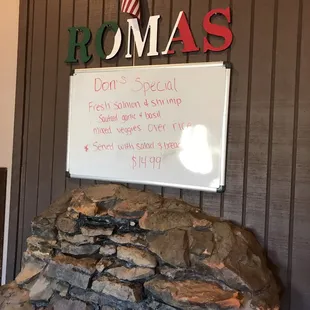 ROMAS
Don's Special
Fresh Salmon & shrimp
Sauteed garlic & basil
mixed veggies over rice
* Served with salad & bread
$14.99